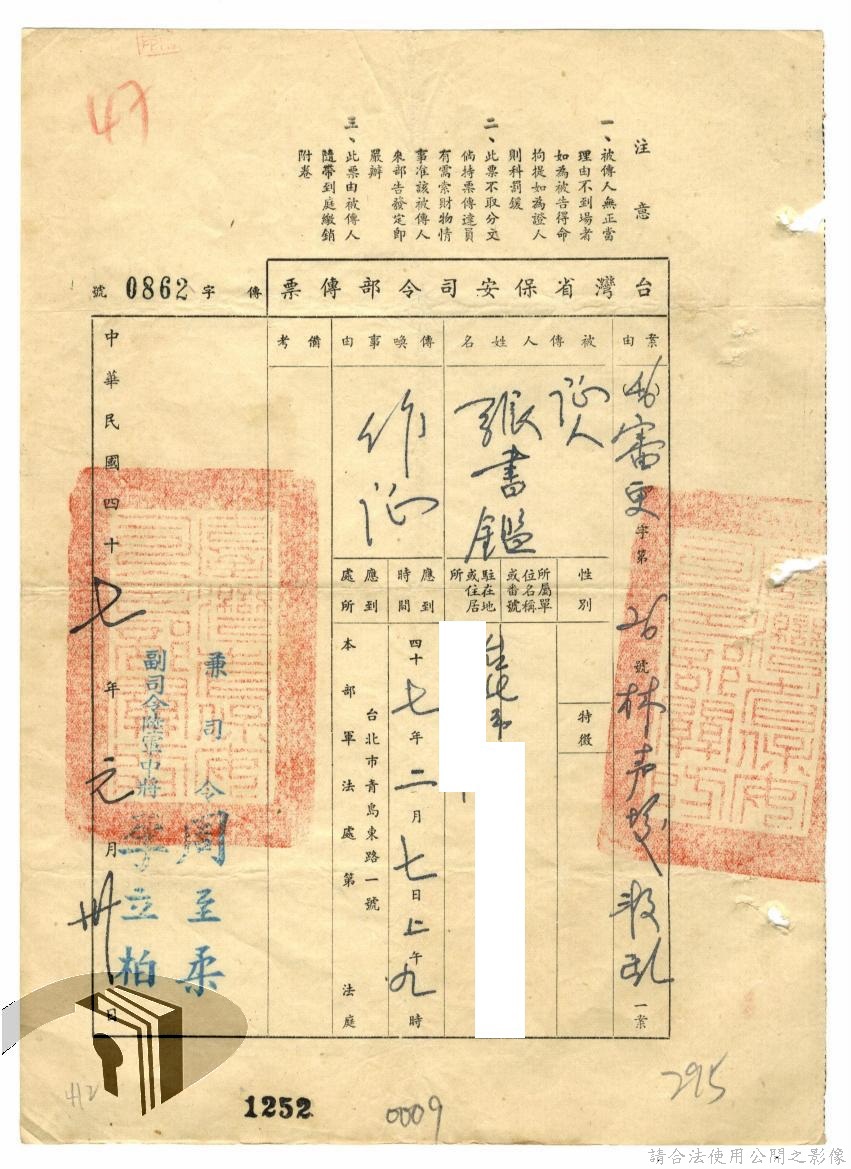 47
注意
一、被傳人無正當
理由不到場者
如為被告得命
拘提如為證人
則科罰鍰
二、此票不取分文
倘持票傳達員
有需索財物情
事准該被傳人
來部告發定即
嚴辦
三、此票由被傳人
隨帶到庭繳銷
附卷
台灣省保安司令部傳票
傳字0862號
案由
審更字第26號林声發叛乱一案
被傳人姓名
証人
張書鑑
性別
特徵
所屬單位名稱或番號
駐在地或住居所
傳喚事由
作証
應到時間
四十七年二月七日上午九時
應到處所
台北市青島東路一號
本部軍法處第 法庭
備考
兼司令周至柔
副司令陸軍中將李立柏
中華民國四十七年元月卅日
412
1252
0009
295
請合法使用公開之影像